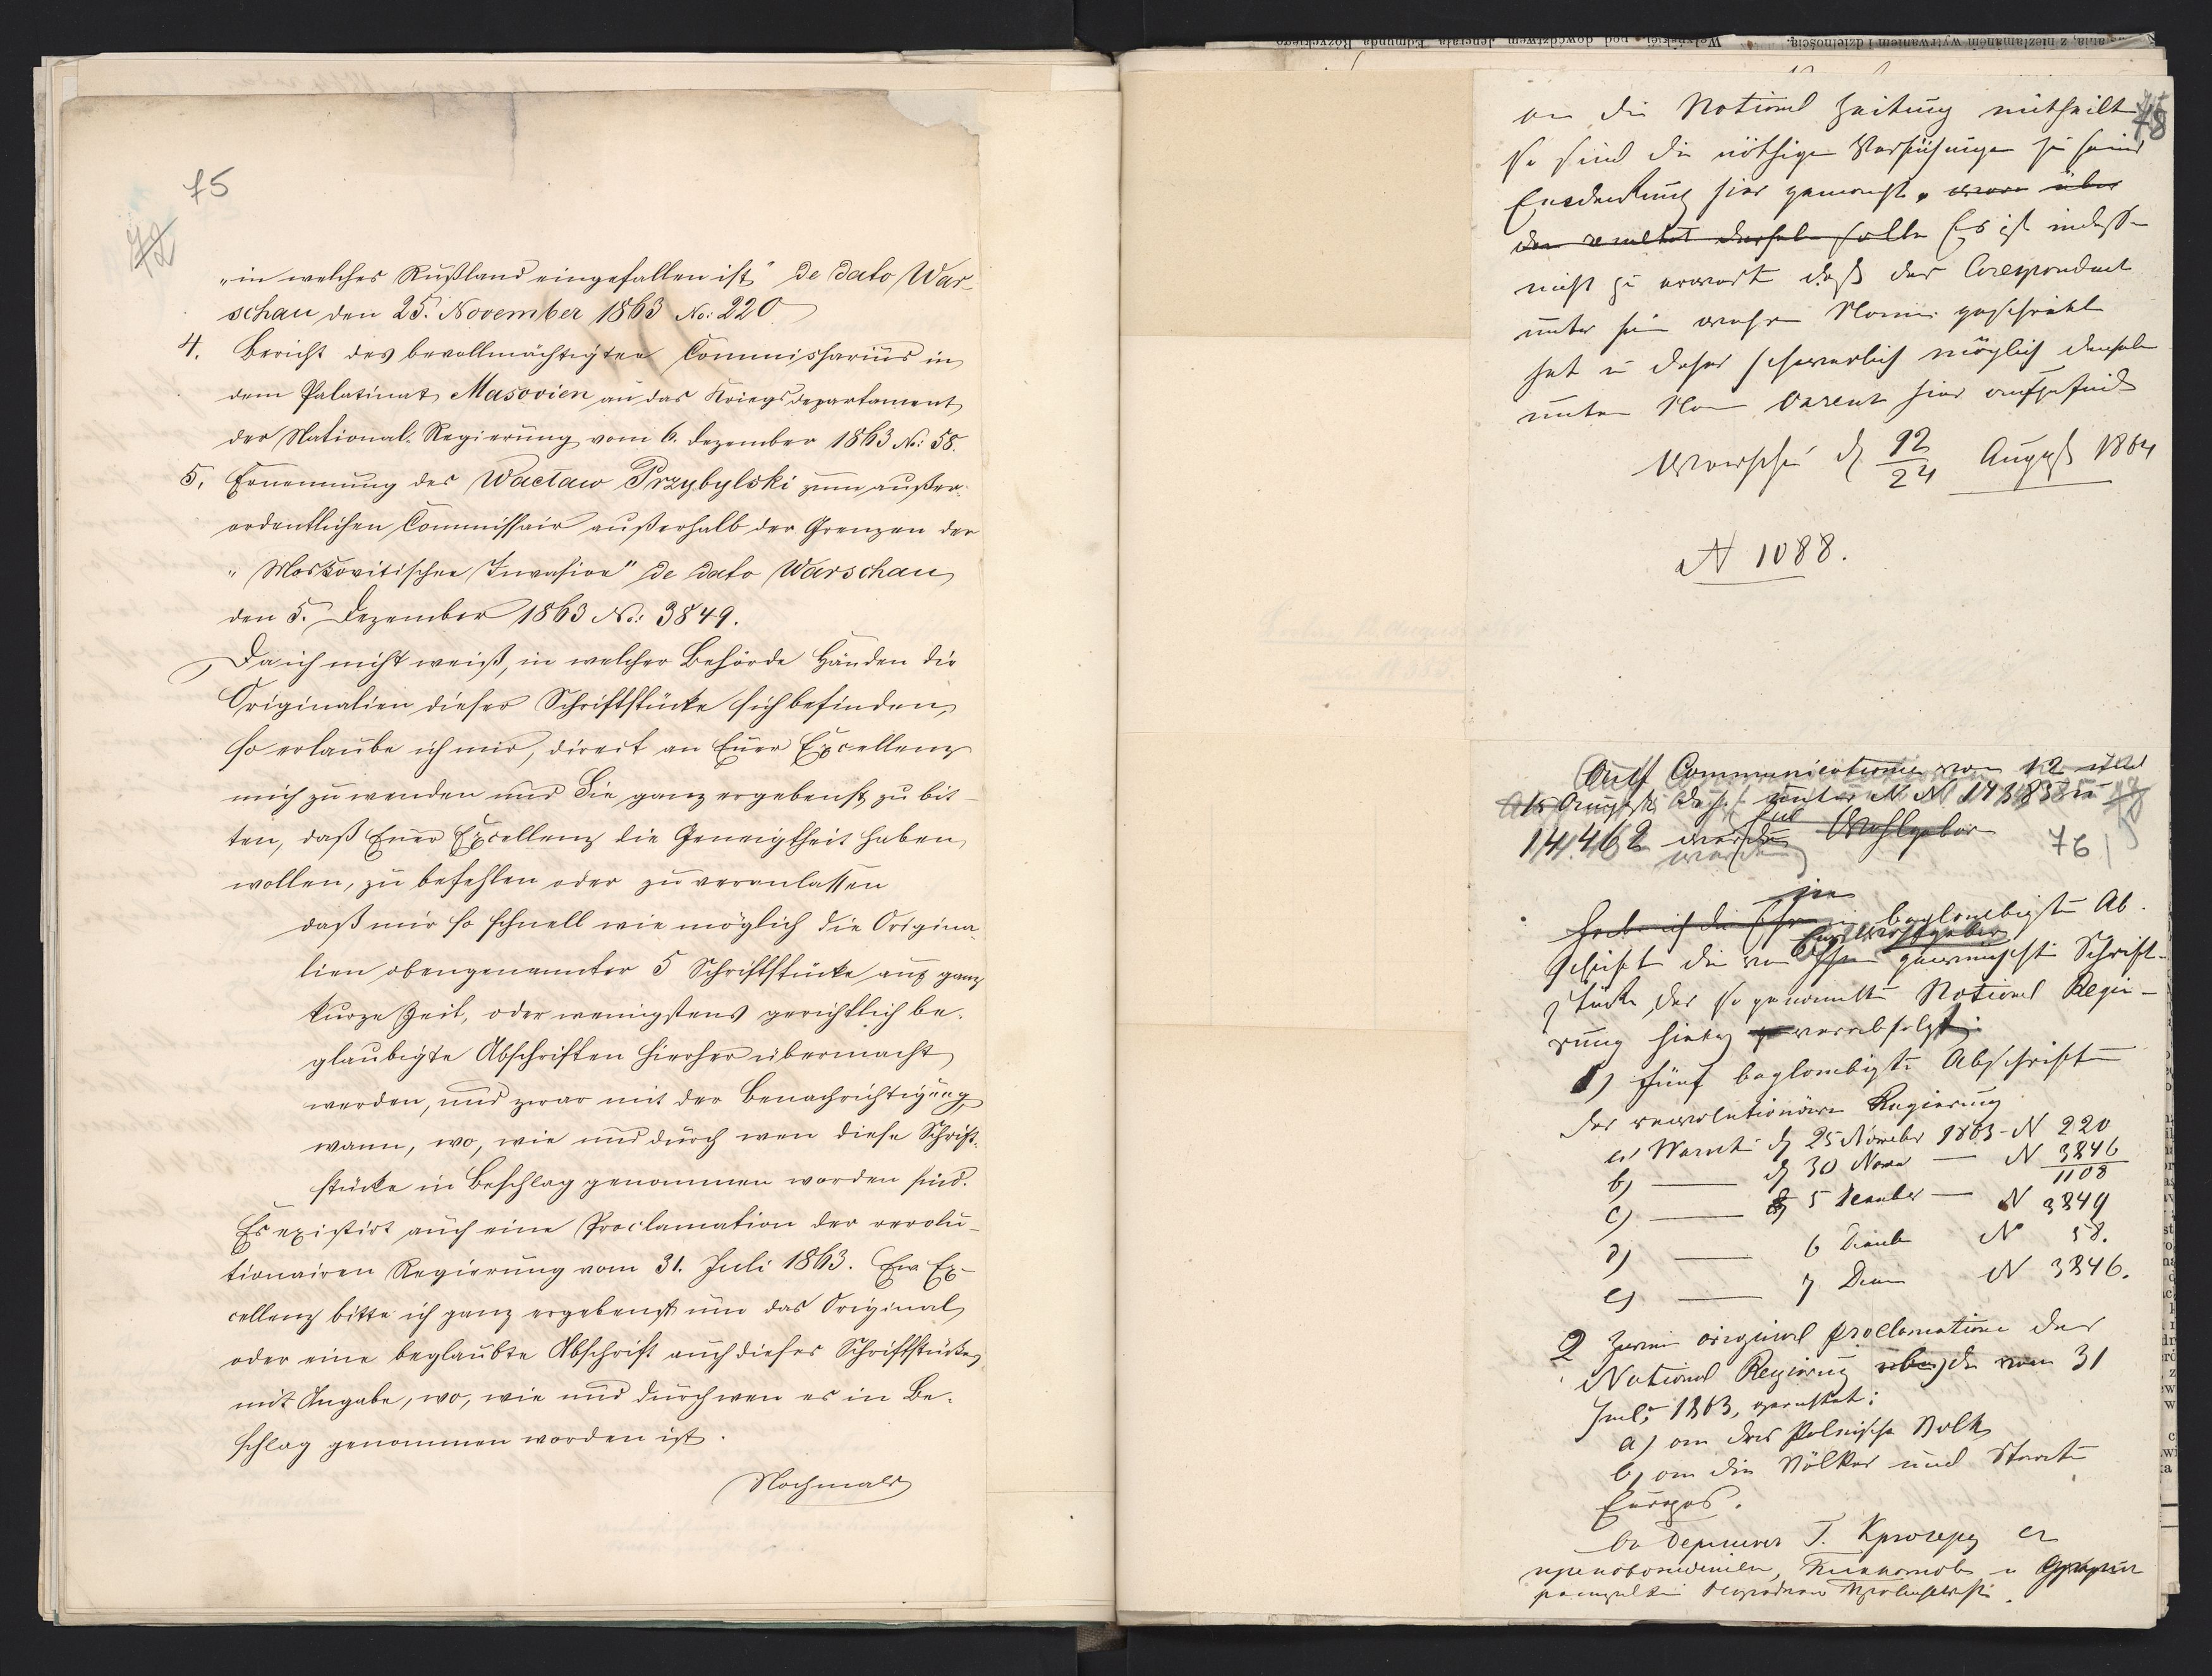 75
72
„in welches Rußland eingefallen ist" de dato War-
schau den 25. November 1863 No: 220
4. Bericht des bevollmächtigten Commissarius in
dem Palatinat Masovien an das Kriegsdepartement
der National-Regierung vom 6. Dezember 1863 No: 58.
5. Ernennung des Wactaw Przybylski zum außer-
ordentlichen Commissair außerhalb der Grenzen der
„Moskovitischen Invasion" de dato Warschau
den 5. Dezember 1863 No: 3849.
Da ich nicht weiß, in welcher Behörde Händen die
Originalien dieser Schriftstücke sich befinden,
so erlaube ich mir, direct an Euer Excellenz
mich zu wenden und Sie ganz ergebenst zu bit-
ten, daß Euer Excellenz die Geneigtheit haben
wollen, zu befehlen oder zu veranlassen
daß mir so schnell wie möglich die Origina-
lien obengenannter 5 Schriftstücke auf ganz
kurze Zeit, oder wenigstens gerichtlich be-
glaubigte Abschriften hierher übermacht
werden, und zwar mit der Benachrichtigung,
wann, wo, wie und durch wen diese Schrift-
stücke in Beschlag genommen worden sind.
Es existirt auch eine Proclamation der revolu-
tionairen Regierung vom 31. Juli 1863. Ew Ex-
cellenz bitte ich ganz ergebenst um das Original
oder eine beglaubte Abschrift auch dieses Schriftstückes,
mit Angabe, wo, wie und durch wen es in Be-
schlag genommen worden ist.
Nochmals
an die National Zeitung mittheilt
so sind die nöthigen zu seiner
Entdeckung hier gemacht. über
den resultat derselben sollte Es ist indessen
nicht zu erwarten daß der Corespondent
unter sein wahren Namen geschrieben
hat u daher schwerlich möglich denselben
unter Namen hier aufzufinden
Warschau d 12/24 August 1864
N 1088.
Auf Communicationen vom 12 und
15 August unter N N 14383 u
14,462 werden Wohlgebor
76
in
habe ich die Ehre in beglaubigten Ab-
schrift die von Ihnen gewünschten Schrift-
stücke der so genannten National Regie-
rung hierbei verabfolgt:
1) fünf beglaubigte Abschriften
der revolutionären Regierung
a) Warsch d 25 November 1863 - N 220
b) — d 30 Nove — N 3846/1108
c) — d 5 December — N 3849
d) — 6 Decemb N 58.
e) — 7 Decem N 3846.
2 Zwei original proclamationen der
National Regierung vom 31
Juli 1863, gerichtet:
a) an das Polnische Volk
b) an die Völker und Staaten
Europas.